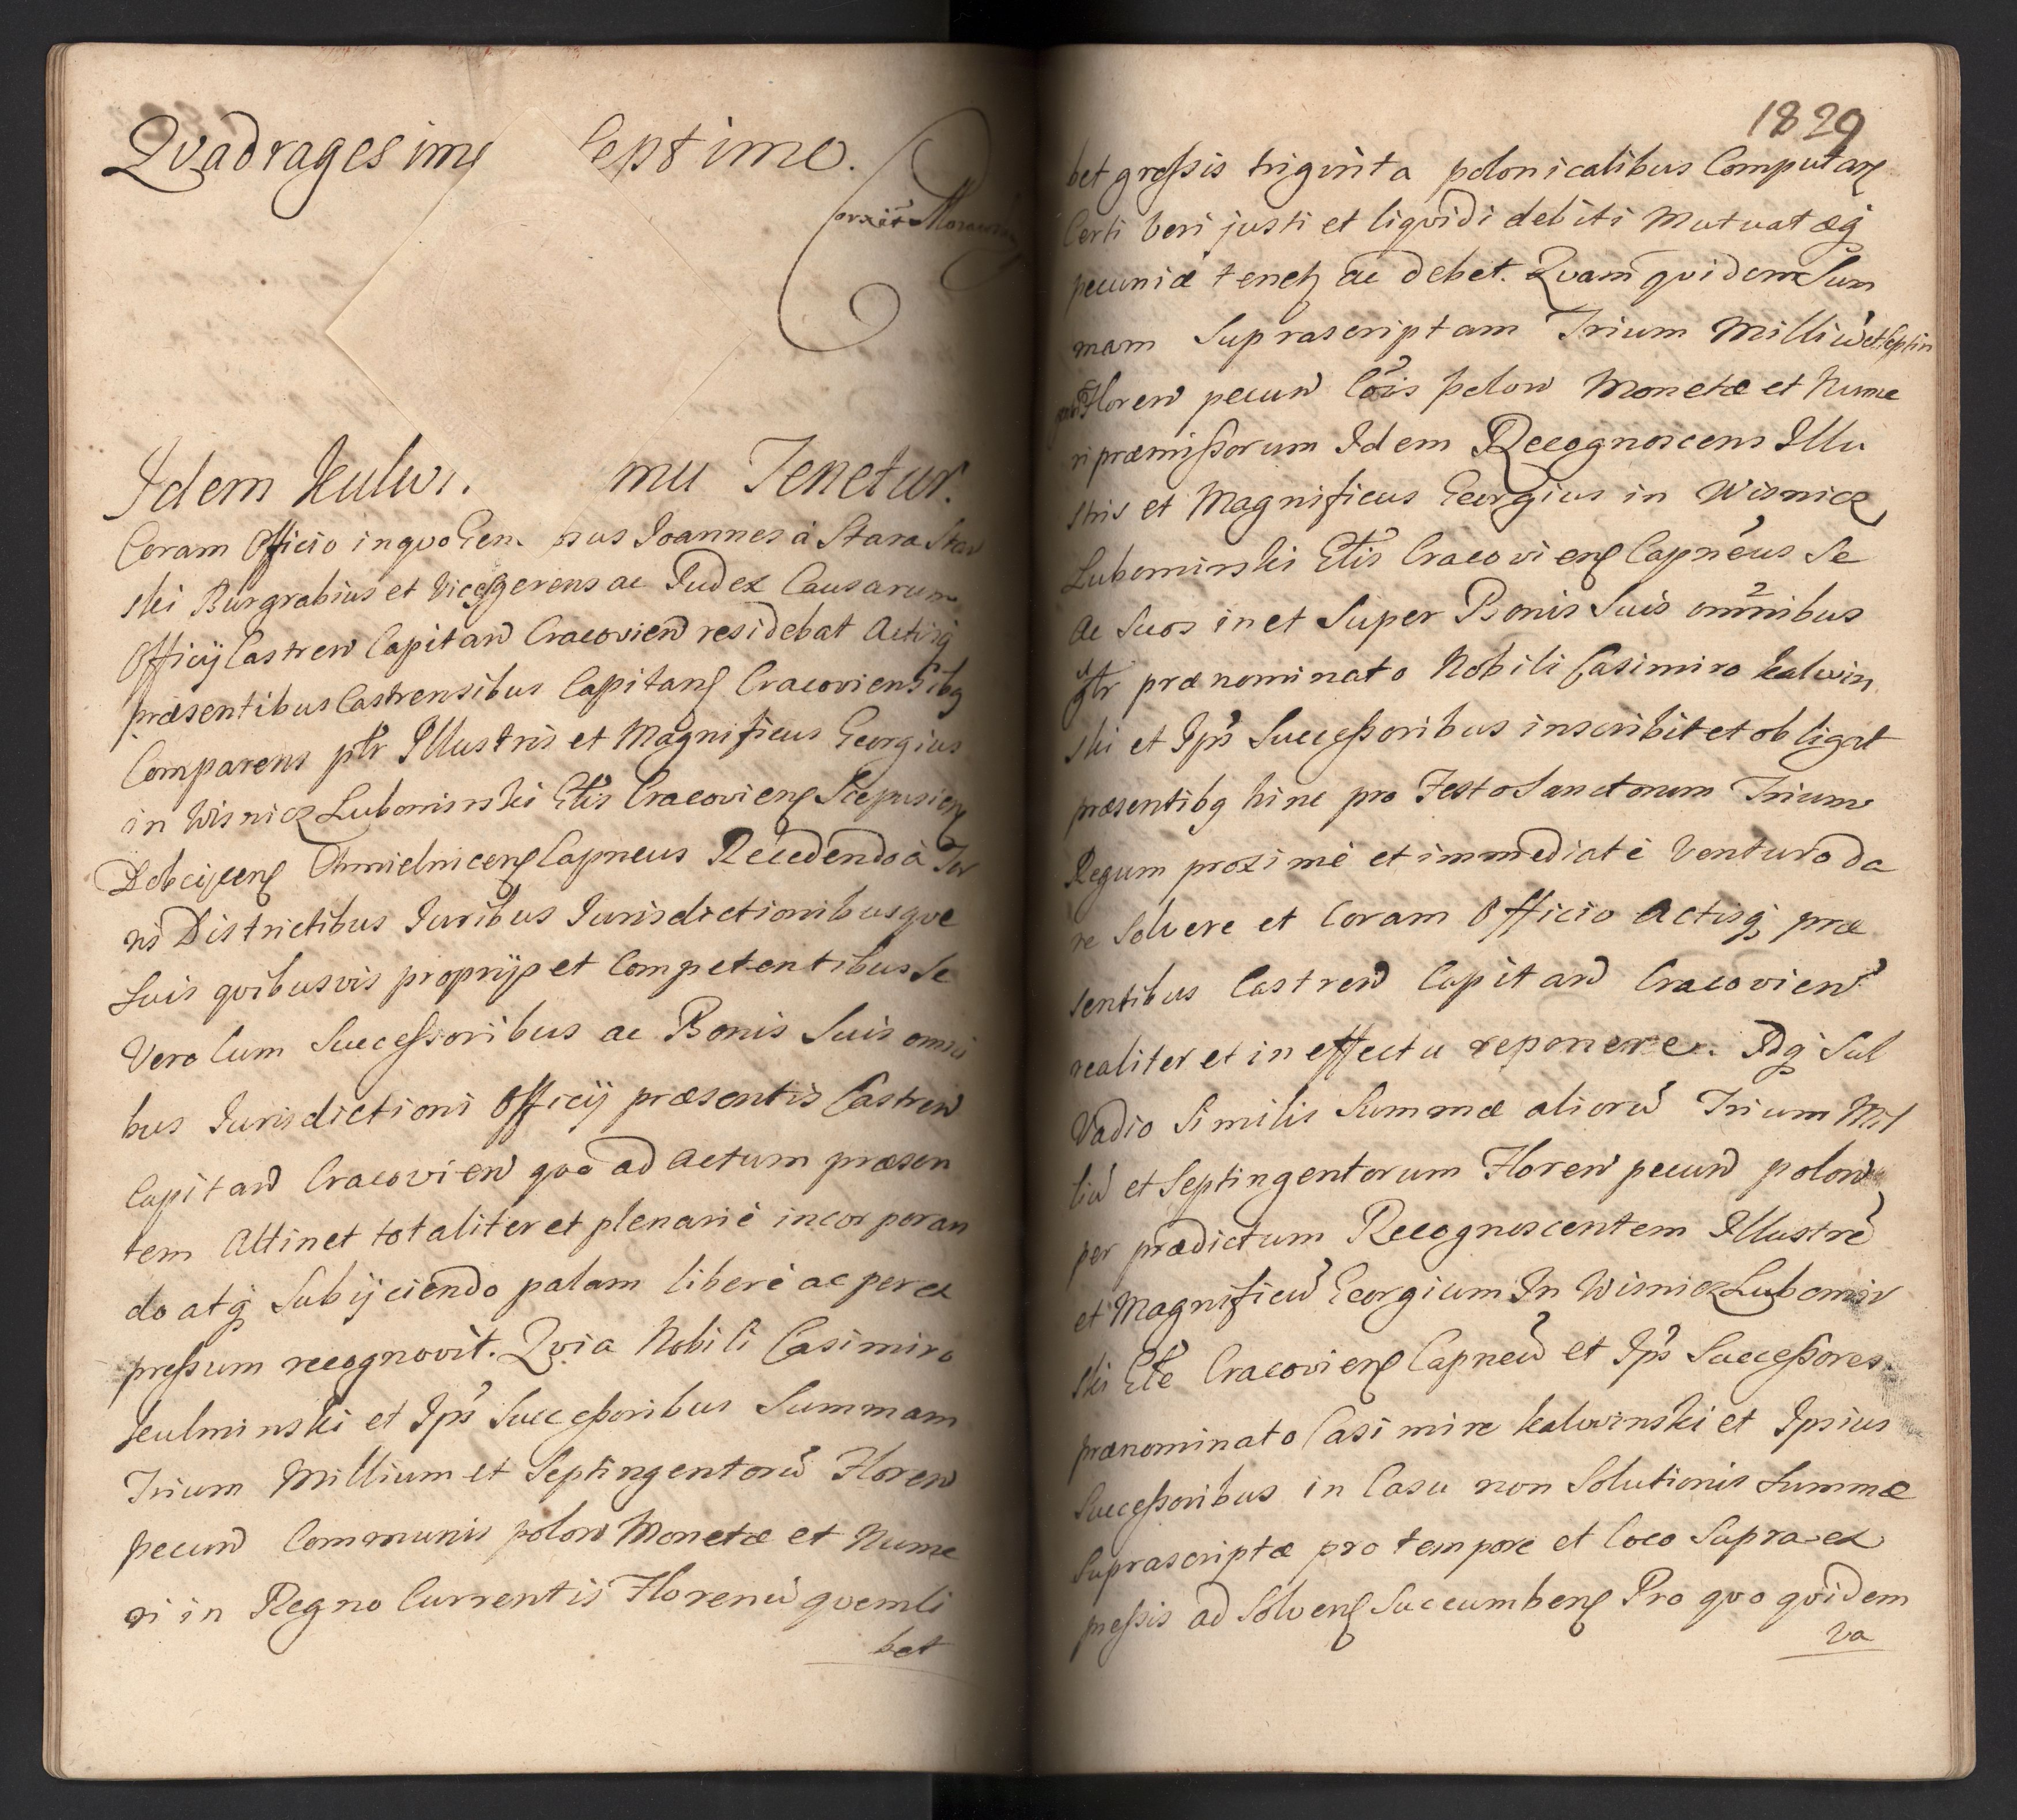 Qvadragesime Septimo.
Idem Kulwi. mu Tenetur.
Coram Officio in qvo Gen osus Joannes à Stara Star
ski Burgrabius et Vicesgerens ac Judex Causarum
Officij Castren Capitan Cracovien residebat Actisq
præsentibus Castrensibus Capitan Cracoviensibq
Comparens ptr Illustris et Magnificus Georgius
in Wisnicz Lubomirski Ctis Cracovien Scepusien
Dobcijcen Chmielnicen Capneus Recedendo à Ter
ris Districtibus Juribus Jurisdictionibusqve
Suis qvibusvis proprijs et Competentibus Se
Vero Cum Successoribus ac Bonis Suis omni
bus Jurisdictioni Officij præsentis Castren
Capitan Cracovien qvo ad Actum præsen
tem Attinet totaliter et plenariè incorporan
do atq Subijciendo palam liberè ac per ex
pressum recognovit. Qvia Nobili Casimiro
Kulminski et Ips Successoribus Summam
Trium Millium et Septingentorū Floren
pecun Communis polon Monetæ et Nume
ri in Regno Currentis Florenū qvemli
bet
1829
bet grossis triginta polonicalibus Computan
Certi Veri justi et liqvidi debiti Mutuatæq
pecuniæ tenetz ac debet. Qvam qvidem Sum
mam Suprascriptam Trium Milliū et Septin
Floren pecun Cōis polon Monetæ et Nume
ri præmissorum Idem Recognoscens Illu
stris et Magnificus Georgius in Wisnicz
Lubomirski Ctis Cracovien Capneus Se
Ac Suos in et Super Bonis Suis omnibus
gtr prænominato Nobili Casimiro Kalwin
ski et Ips Successoribus inscribit et obligat
præsentibq hinc pro Festo Sanctorum Trium
Regum proximè et immediatè Venturo da
re Solvere et Coram Officio Actisq præ
sentibus Castren Capitan Cracovien
realiter et in effectu reponere. Idq Sub
Vadio Similis Summæ aliorū Trium Mil
liū et Septingentorum Floren pecun polon
per prædictum Recognoscentem Illustrē
et Magnificū Georgium In Wisnicz Lubomir
ski Cte Cracovien Capneū et Ips Successores
prænominato Casimiro Kalwinski et Ipsius
Successoribus in Casu non Solutionis Summæ
Suprascriptæ pro tempore et loco Supra ex
pressis ad Solven Succumben Pro qvo qvidem
Va